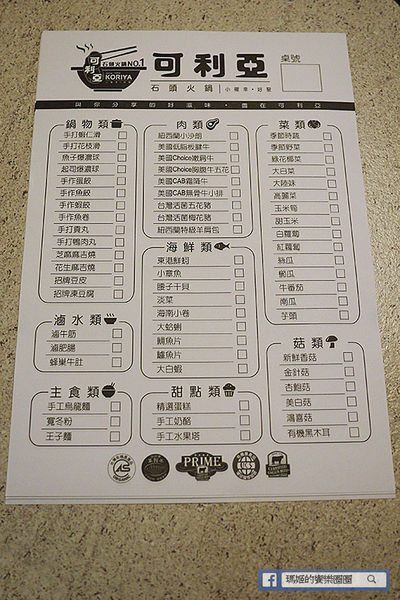 可利亞
石頭火鍋NO.1
KORIYA
可利亞
石頭火鍋 小確幸·好聚
桌號
與你分享的好滋味·盡在可利亞
鍋物類
手打蝦仁滑
手打花枝滑
魚子爆濃球
起司爆濃球
手作蛋餃
手作魚餃
手作蝦餃
手作魚卷
手打貢丸
手打鴨肉丸
芝麻麻吉燒
花生麻吉燒
招牌豆皮
招牌凍豆腐
滷水類
滷牛筋
滷肥腸
蜂巢牛肚
主食類
手工烏龍麵
寬冬粉
王子麵
肉類
紐西蘭小沙朗
美國低脂板腱牛
美國Choice嫩肩牛
美國Choice胸腹牛五花
美國CAB霜降牛
美國CAB無骨牛小排
台灣活菌五花豬
台灣活菌梅花豬
紐西蘭特級羊肩包
海鮮類
東港鮮蚵
小章魚
腰子干貝
淡菜
海南小卷
大蛤蜊
鯛魚片
鱸魚片
大白蝦
甜點類
精選蛋糕
手工奶酪
手工水果塔
菜類
季節時蔬
季節野菜
綠花椰菜
大白菜
大陸妹
高麗菜
玉米筍
甜玉米
白蘿蔔
紅蘿蔔
絲瓜
櫛瓜
牛番茄
南瓜
芋頭
菇類
新鮮香菇
金針菇
杏鮑菇
美白菇
鴻喜菇
有機黑木耳
PRIME
瑪姬的饗樂圈圈